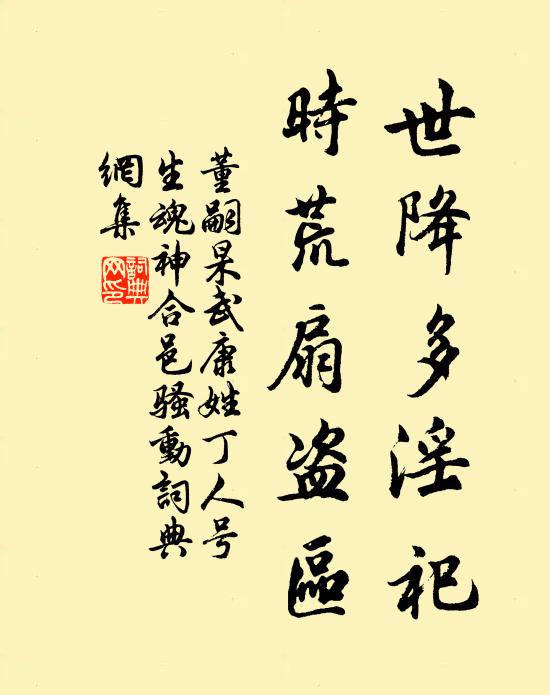 世降多淫祀
時荒扇盗區
董嗣杲武康姓丁人号
生魂神合邑騷動詞典
網集
詞典
网印